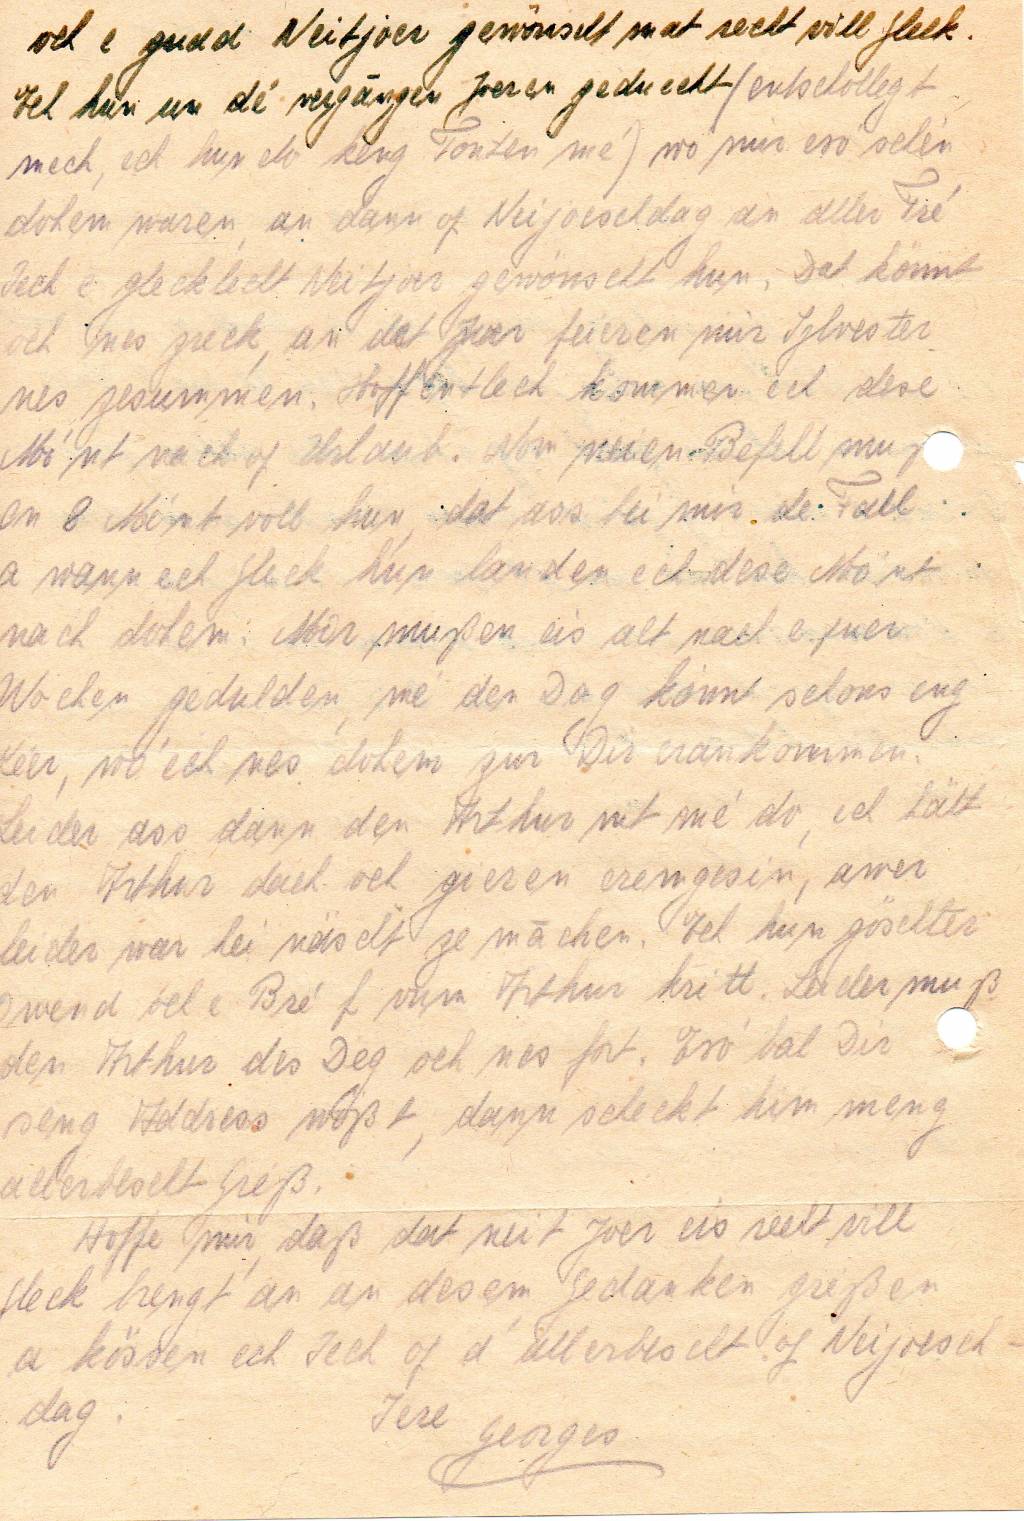 och e gudd Neitjoer gewönscht mat recht vill Gleck.
Ech hun un dé vergängen Joeren geduecht (entschöllegt
mech, ech hun do keng Tönten mé) wo mir esó schén
dohem waren, an dann of Neijoeschdag an aller Fré
Iech e glecklecht Neitjoer gewönscht hun. Dat könnt
och nes zreck, an det Joer feieren mir Sylvester
nes zesummen. Hoffentlech kommen ech dese
Mó'nt nach of Urlaub. Nom neien Befell muß
en 8 Mónt voll hun, dat ass bei mir de Fall
a wann ech Gleck hun landen ech dese Mó'nt
nach dohem. Mir mußen eis alt nach e puer
Wochen gedulden, mé den Dag könnt schons eng
Keer, wó ech nes dohem zur Dir erankommen.
Leider ass dann den Arthur nit mé do, ech hätt
den Arthur dach och gieren eremgesin, awer
leider war hei näscht ze māchen. Ech hun göschter
Owend och e Bréf vum Arthur kritt. Leider muß
den Arthur des Deg och nes fort. Esó bal Dir
seng Address wößt, dann scheckt him meng
allerbescht Greß.
Hoffe mir, daß dat neit Joer eis recht vill
Gleck brengt an an desem Gedanken greßen
a kössen ech Iech of d' allerbescht of Neijoesch-
dag.
Iere Georges